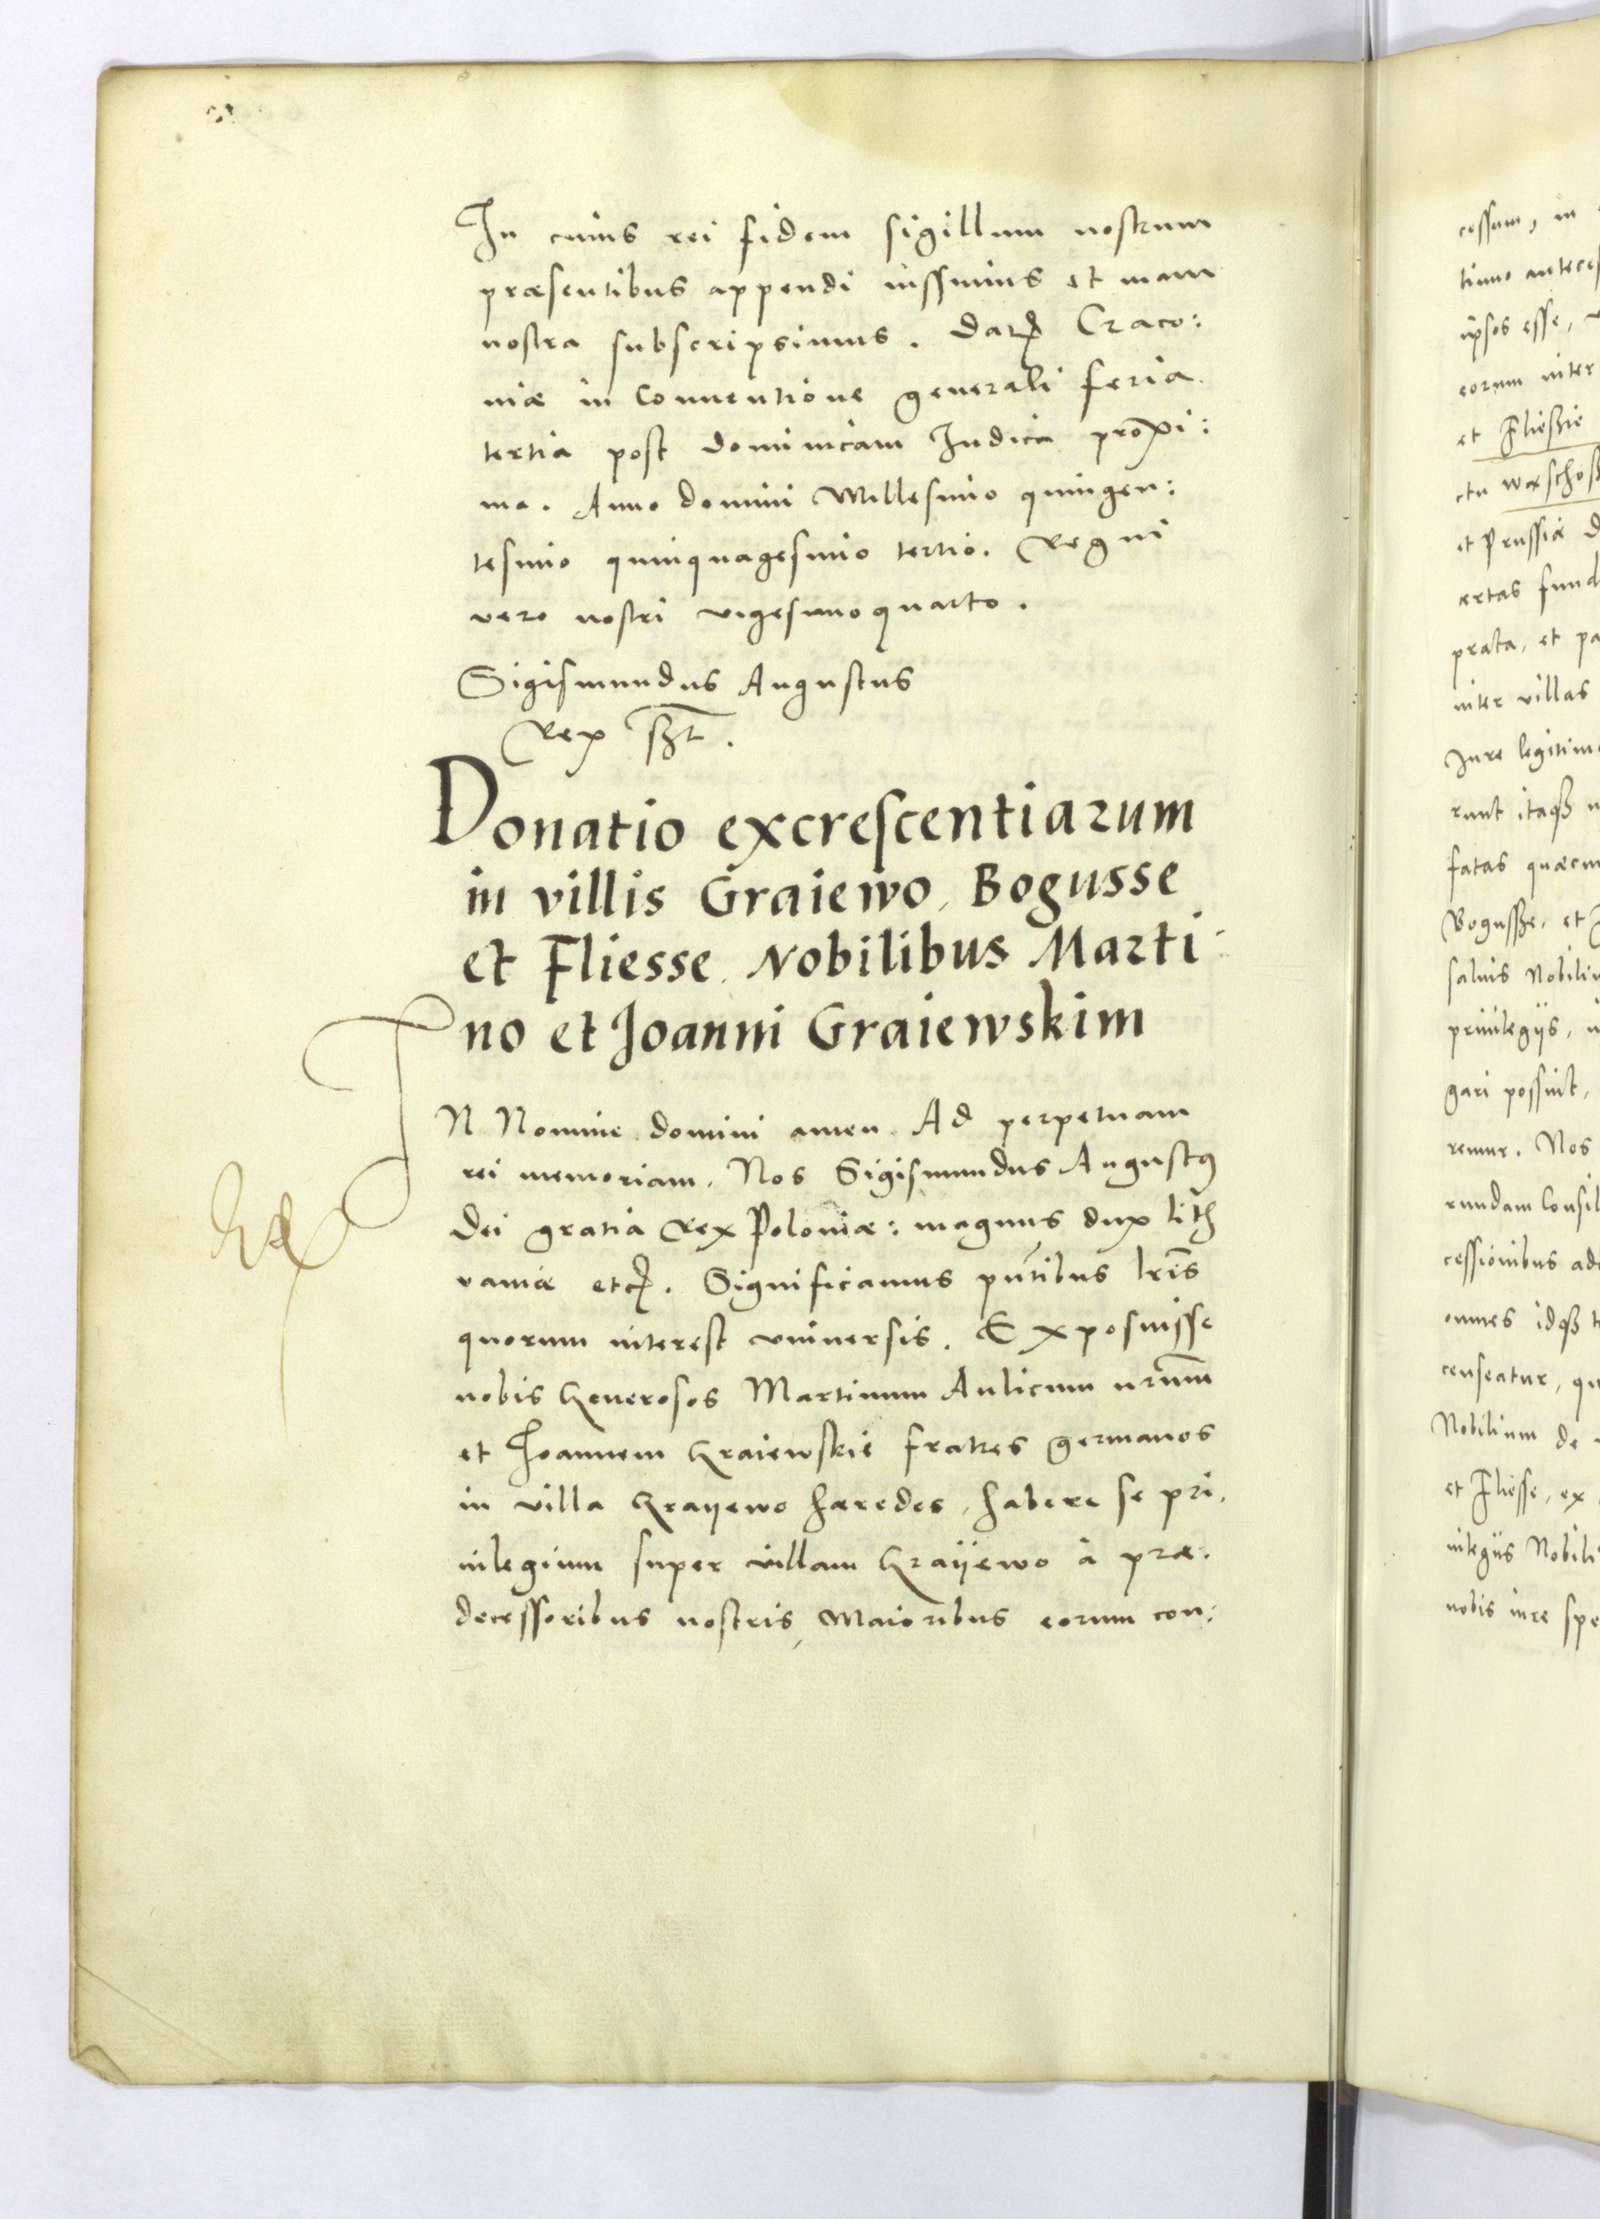 In cuius rei fidem sigillum nostrum
præsentibus appendi iussimus et manu
nostra subscripsimus. Dat Craco:
niæ in Conuentione generali feria
tertia post dominicam Iudica proxi:
ma. Anno domini Millesimo quingen:
tesimo quinquagesimo tertio. Regni
vero nostri vigesimoquarto.
Sigismundus Augustus
Rex sszt.
Donatio excrescentiarum
in villis Graiewo, Bogusse
et Fliesse. Nobilibus Marti:
no et Joanni Graiewskim
IN Nomine domini amen. Ad perpetuam
rei memoriam. Nos Sigismundus Augustus
Dei gratia Rex Poloniæ: magnus dux lith
vaniæ etc. Significamus pntibus lris
quorum interest vniuersis. Exposuisse
nobis Generosos Martinum Aulicum nrum
et Joannem Graiewskie fratres germanos
in villa Grayewo hæredes, habere se pri,
uilegium super villam Graijewo à præ.
decessoribus nostris, Maioribus eorum con:
cessum, in
timo anteces
ipsos esse,
eorum inter
et Flieszie
ctu wæschosz
et Prussiæ d
ertas fund
prata, et pa
inter villas
Jure legitim
runt itaq3
fatas quæcun
Bogussze, et
saluis Nobiliu
priuilegijs,
gari possint,
remur. Nos
rundam Consil
cessionibus ad
omnes idq3 t
censeatur, qu
Nobilium de
et Fliesse, ex
uilegijs Nobili
nobis iure spe